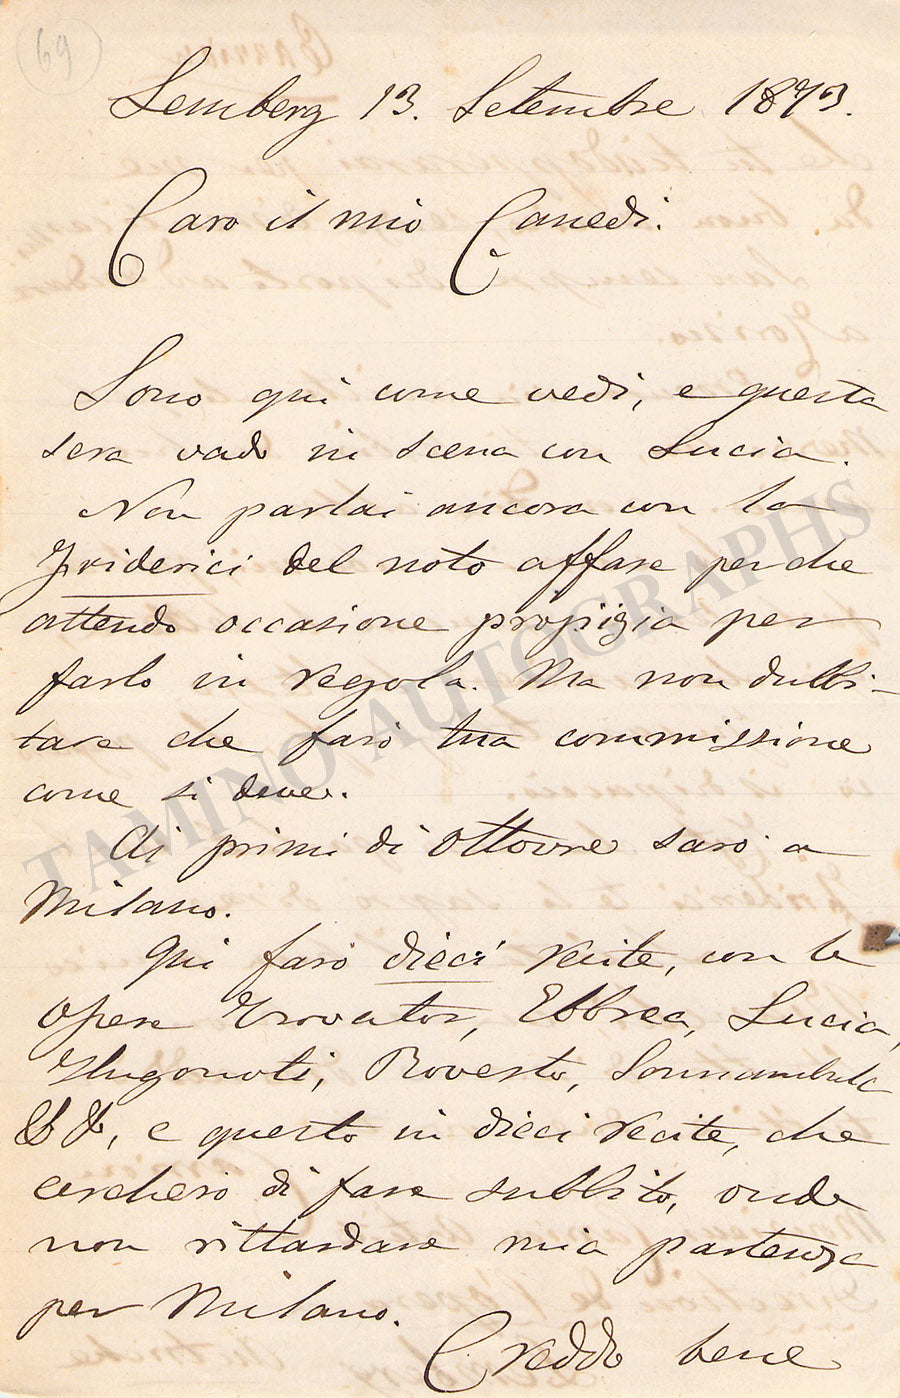 69
Lemberg 13. Setembre 1873.
Caro il mio Canedi.
Sono qui come vedi, e questa
sera vado in scena con Lucia.
Non parlai ancora con la
Friderici del noto affare perche
attendo occasione propizia per
farlo in regola. Ma non dubbi-
tare che farò tua commissione
come si deve.
Ai primi di Ottovre sarò a
Milano.
Qui farò dieci recite, con le
Opere Trovator, Ebbrea, Lucia,
Hugonoti, Roverto, Sonnambula
& &, e questo in dieci recite, che
cercherò di fare subbito, onde
non rittardare mia partenza
per Milano.
Creddo bene
TAMINO AUTOGRAPHS